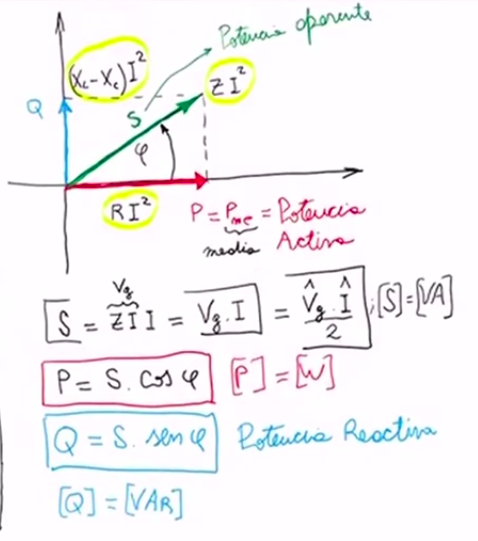 Potencia aparente
(X_L-X_C)I²
ZI²
Q
S
φ
RI²
P = P_me = Potencia
media Activa
V_g
S = ZI I = V_g . I = V̂_g . Î / 2 ; [S]=[VA]
P = S . cos φ [P]=[W]
Q = S . sen φ Potencia Reactiva
[Q]=[VAR]